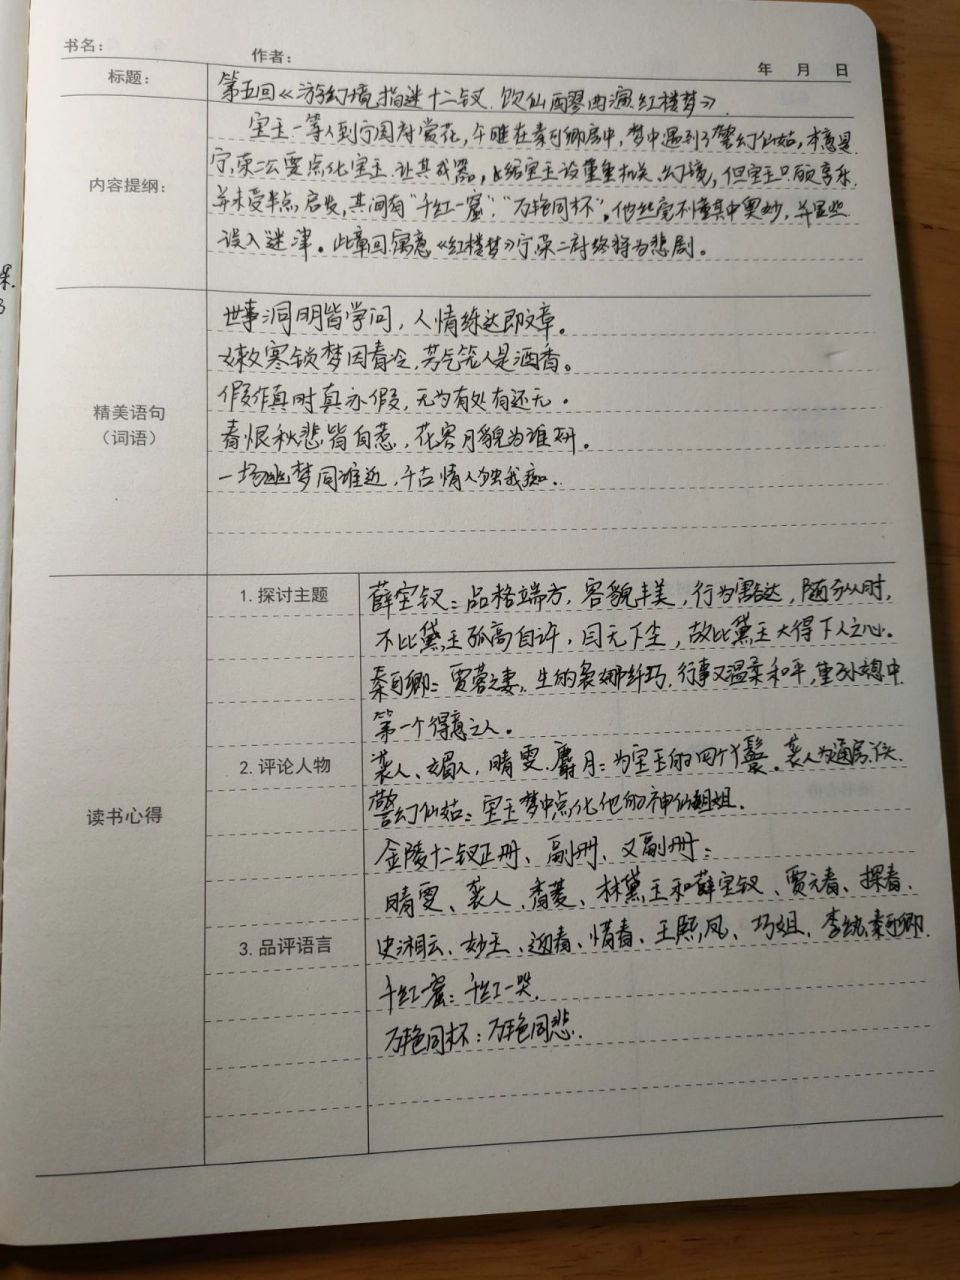 书名：
作者：
年 月 日
标题：
第五回《游幻境指迷十二钗 饮仙醪曲演红楼梦》
内容提纲：
宝玉一等人到宁国府赏花，午睡在秦可卿房中，梦中遇到了警幻仙姑，本意是
宁、荣二公要点化宝玉，让其成器，给宝玉设重重机关、幻境，但宝玉只顾享乐
并未受半点启发，其间有“千红一窟”，“万艳同杯”，他丝毫不懂其中奥妙，并
误入迷津。此章回寓意《红楼梦》宁荣二府终将为悲剧。
精美语句
（词语）
世事洞明皆学问，人情练达即文章。
嫩寒锁梦因春冷，芳气笼人是酒香。
假作真时真亦假，无为有处有还无。
春恨秋悲皆自惹，花容月貌为谁妍。
一场幽梦同谁近，千古情人独我痴.
读书心得
1. 探讨主题
薛宝钗：品格端方，容貌丰美，行为豁达，随分从时，
不比黛玉孤高自许，目无下尘，故比黛玉大得下人之心。
秦可卿：贾蓉之妻，生的袅娜纤巧，行事又温柔和平，重孙媳中
第一个得意之人。
2. 评论人物
袭人、媚人，晴雯、麝月：为宝玉的四个丫鬟。袭人为通房
警幻仙姑：宝玉梦中点化他的神仙姐姐.
金陵十二钗正册、副册、又副册：
晴雯、袭人、香菱、林黛玉和薛宝钗、贾元春、探春、
3. 品评语言
史湘云、妙玉、迎春、惜春、王熙凤、巧姐、李纨、秦可卿.
千红一窟：千红一哭.
万艳同杯：万艳同悲.